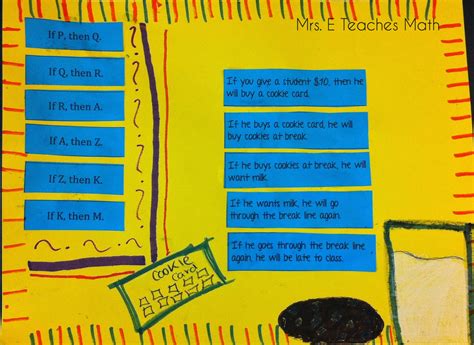 Mrs. E Teaches Math
If P, then Q.
If Q, then R.
If R, then A.
If A, then Z.
If Z, then K.
If K, then M.
If you give a student $10, then he
will buy a cookie card.
If he buys a cookie card, he will
buy cookies at break.
If he buys cookies at break, he will
want milk.
If he wants milk, he will go
through the break line again.
If he goes through the break line
again, he will be late to class.
cookie
card